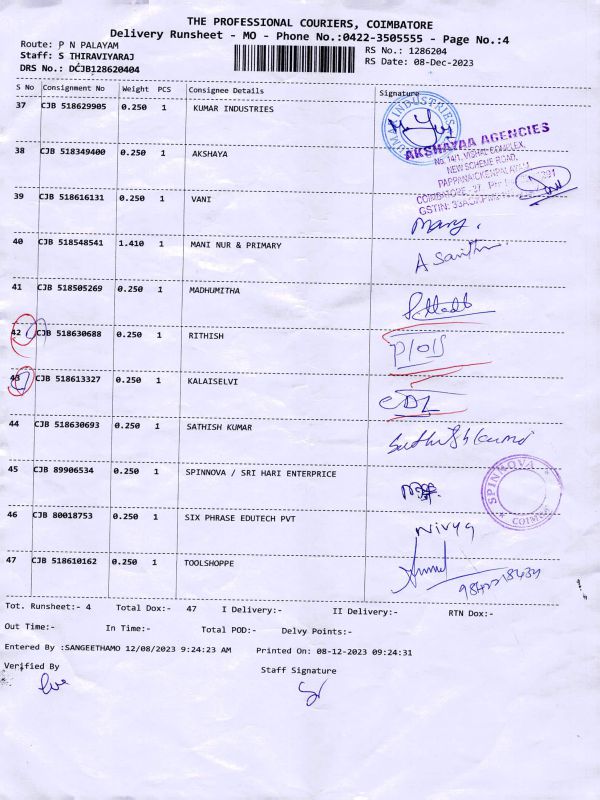 THE PROFESSIONAL COURIERS, COIMBATORE
Delivery Runsheet - MO - Phone No.:0422-3505555 - Page No.:4
Route: P N PALAYAM
RS No.: 1286204
Staff: S THIRAVIYARAJ
RS Date: 08-Dec-2023
DRS No.: DCJB128620404
S No Consignment No Weight PCS Consignee Details Signature
37 CJB 518629905 0.250 1 KUMAR INDUSTRIES
AKSHAYAA AGENCIES
NEW SCHEME ROAD,
38 CJB 518349400 0.250 1 AKSHAYA
39 CJB 518616131 0.250 1 VANI
Mary.
40 CJB 518548541 1.410 1 MANI NUR & PRIMARY
41 CJB 518505269 0.250 1 MADHUMITHA
42 CJB 518630688 0.250 1 RITHISH
43 CJB 518613327 0.250 1 KALAISELVI
CDL
44 CJB 518630693 0.250 1 SATHISH KUMAR
45 CJB 89906534 0.250 1 SPINNOVA / SRI HARI ENTERPRICE
SPINNOVA
46 CJB 80018753 0.250 1 SIX PHRASE EDUTECH PVT
Nivya
47 CJB 518610162 0.250 1 TOOLSHOPPE
Tot. Runsheet:- 4 Total Dox:- 47 I Delivery:- II Delivery:- RTN Dox:-
Out Time:- In Time:- Total POD:- Delvy Points:-
Entered By :SANGEETHAMO 12/08/2023 9:24:23 AM Printed On: 08-12-2023 09:24:31
Verified By Staff Signature